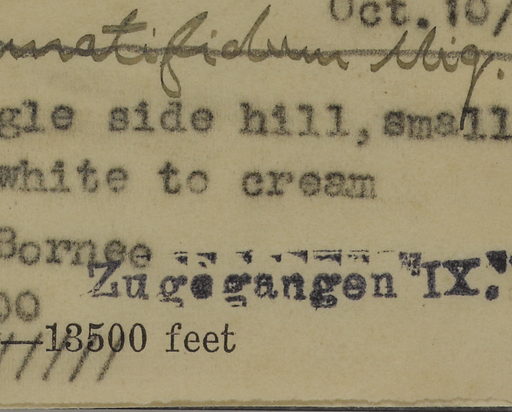 Oct. 10/
natifidum Miq.
gle side hill, small
white to cream
Borneo
Zugegangen IX.
00
—13500 feet